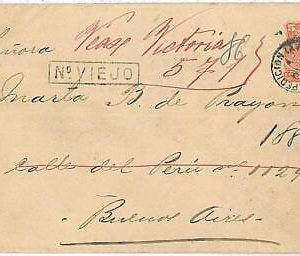 Señora Vease Victoria 86
Nº VIEJO 571
Marta B. de Prayon
188
calle del Perú nº 1129
- Buenos Aires -